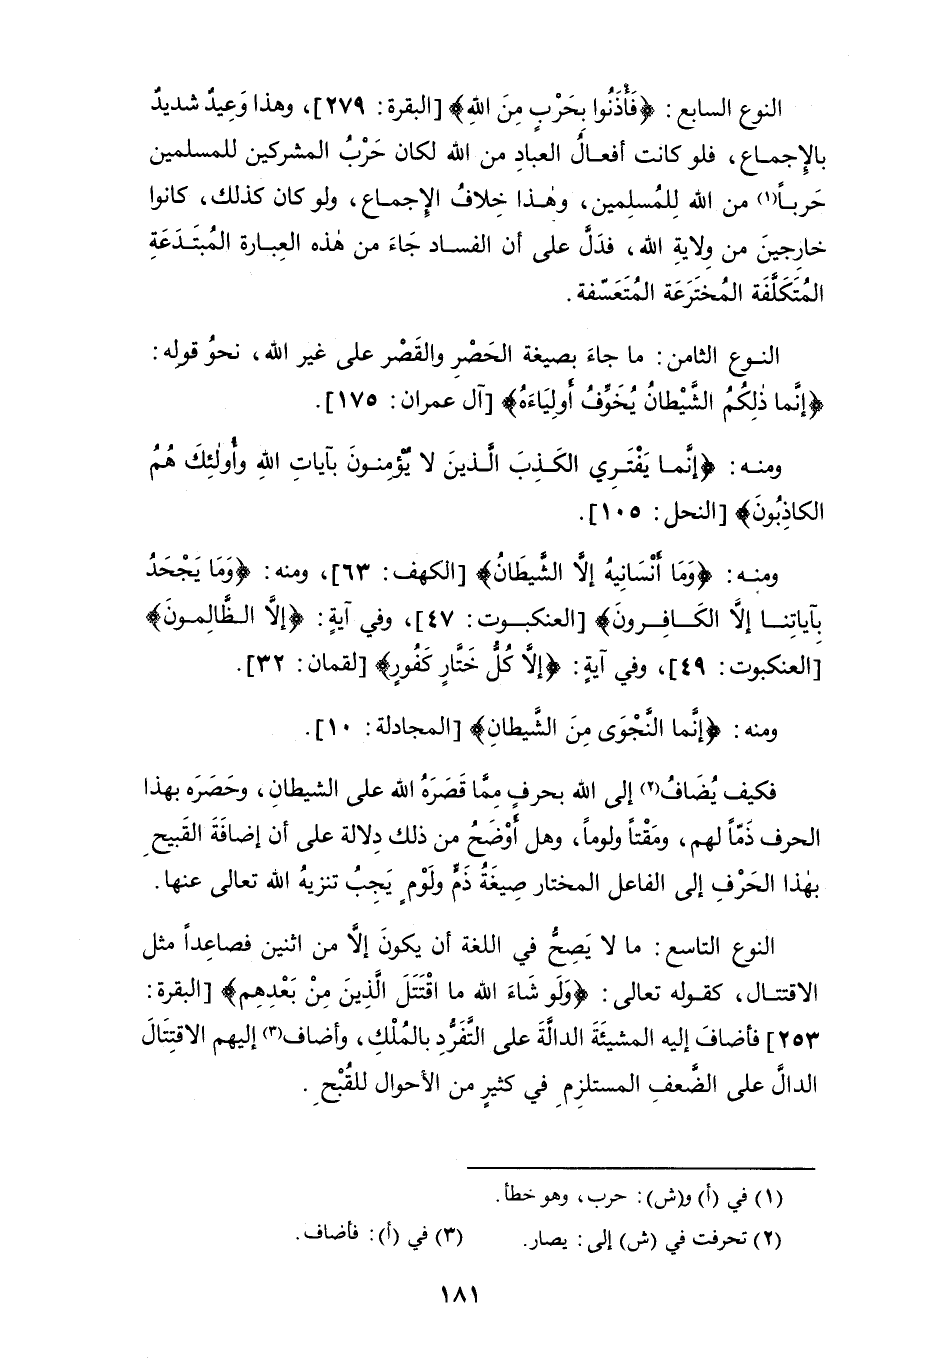 النوع السابع: ﴿فَأْذَنُوا بِحَرْبٍ مِنَ اللهِ﴾ [البقرة: ٢٧٩]، وهذا وَعِيدٌ شديدٌ
بالإِجمـاع، فلو كانت أفعـالُ العبادِ من الله لكان حَرْبُ المشركين للمسلمين
حَربـاً(١) من الله لِلمُسلِمين، وهٰـذا خِلافُ الإِجمـاع، ولو كان كذلك، كانوا
خارجينَ من وِلايةِ الله، فدَلَّ على أن الفسـاد جَاءَ من هٰذه العِبارة المُبتَـدَعَةِ
المُتَكَلَّفَة المُختَرَعَة المُتَعَسّفة.
النـوع الثامن: ما جاءَ بصيغة الحَصْرِ والقَصْر على غير الله، نحوُ قولِه:
﴿إنَّما ذٰلِكُمُ الشَّيْطانُ يُخَوِّفُ أَولِيَاءَهُ﴾ [آل عمران: ١٧٥].
ومنـه: ﴿إنَّمـا يَفْتَـرِي الكَـذِبَ الَّـذينَ لا يُؤمِنـونَ بآياتِ اللهِ وأُولٰئِكَ هُمُ
الكاذِبُونَ﴾ [النحل: ١٠٥].
ومنـه: ﴿وَمَا أَنْسَانِيهُ إلَّا الشَّيطَانُ﴾ [الكهف: ٦٣]، ومنه: ﴿وَمَا يَجْحَدُ
بآياتِنـا إلَّا الكَـافِـرونَ﴾ [العنكبـوت: ٤٧]، وفي آيةٍ: ﴿إلَّا الـظَّالِمـونَ﴾
[العنكبوت: ٤٩]، وفي آيةٍ: ﴿إلَّا كُلُّ خَتَّارٍ كَفُورٍ﴾ [لقمان: ٣٢].
ومنه: ﴿إنَّما النَّجْوَى مِنَ الشَّيطانِ﴾ [المجادلة: ١٠].
فكيف يُضَافُ(٢) إلى الله بحرفٍ مِمَّا قَصَرَهُ الله على الشيطانِ، وحَصَرَه بهذا
الحرف ذَمّاً لهم، ومَقْتاً ولوماً، وهل أَوْضَحُ من ذلك دِلالة على أن إضافَةَ القَبيحِ
بهٰذا الحَرْفِ إلى الفاعل المختار صِيغَةُ ذَمٍّ ولَوْمٍ يَجِبُ تنزيهُ الله تعالى عنها.
النوع التاسع: ما لا يَصِحُّ في اللغة أن يكونَ إلَّا من اثنين فصاعِداً مثل
الاقتتـال، كقـوله تعالى: ﴿وَلَو شَاءَ الله ما اقْتَتَلَ الَّذِينَ مِنْ بَعْدِهِم﴾ [البقرة:
٢٥٣] فأضافَ إليه المشيئَةَ الدالَّةَ على التَّفَرُّدِ بالمُلْكِ، وأضاف(٣) إليهم الاقتِتَالَ
الدالَّ على الضَّعفِ المستلزِمِ في كثيرٍ من الأحوال للقُبْحِ.
(١) في (أ) و(ش): حرب، وهو خطأ.
(٢) تحرفت في (ش) إلى: يصار. (٣) في (أ): فأضاف.
١٨١